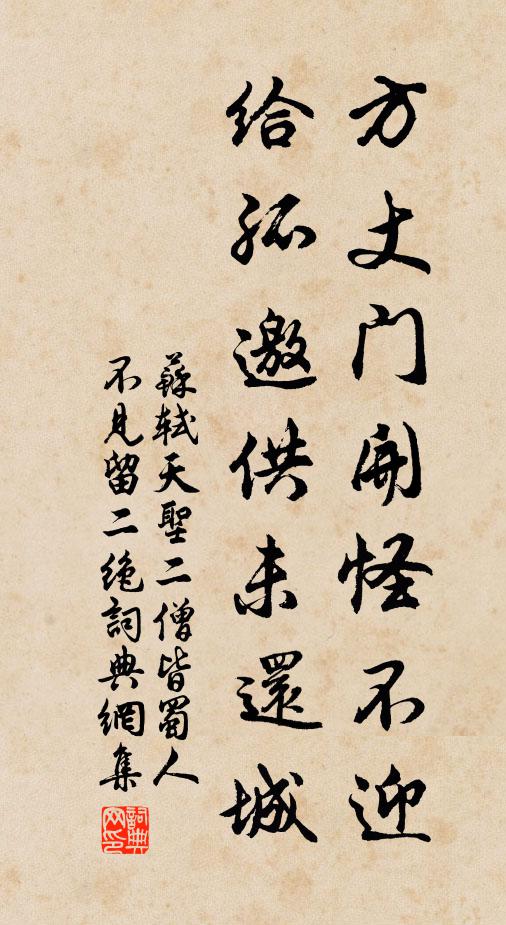 方丈門開怪不迎
給孤邀供未還城
蘇軾天聖二僧皆蜀人
不見留二絶詞典網集
詞典网印